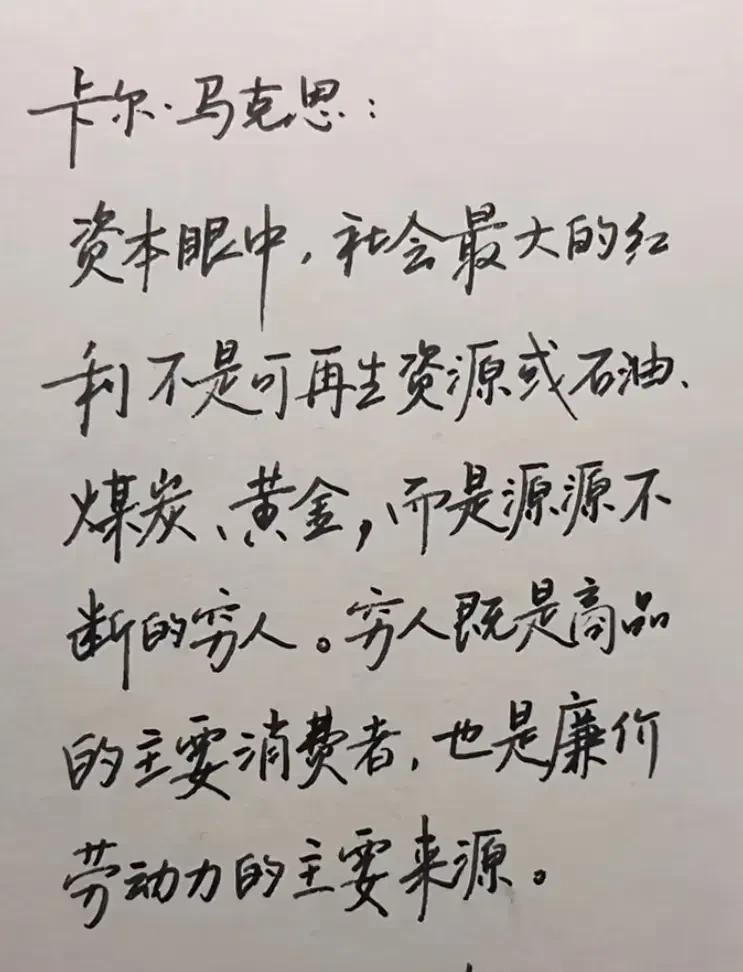 卡尔·马克思：
资本眼中，社会最大的红
利不是可再生资源或石油、
煤炭、黄金，而是源源不
断的穷人。穷人既是商品
的主要消费者，也是廉价
劳动力的主要来源。